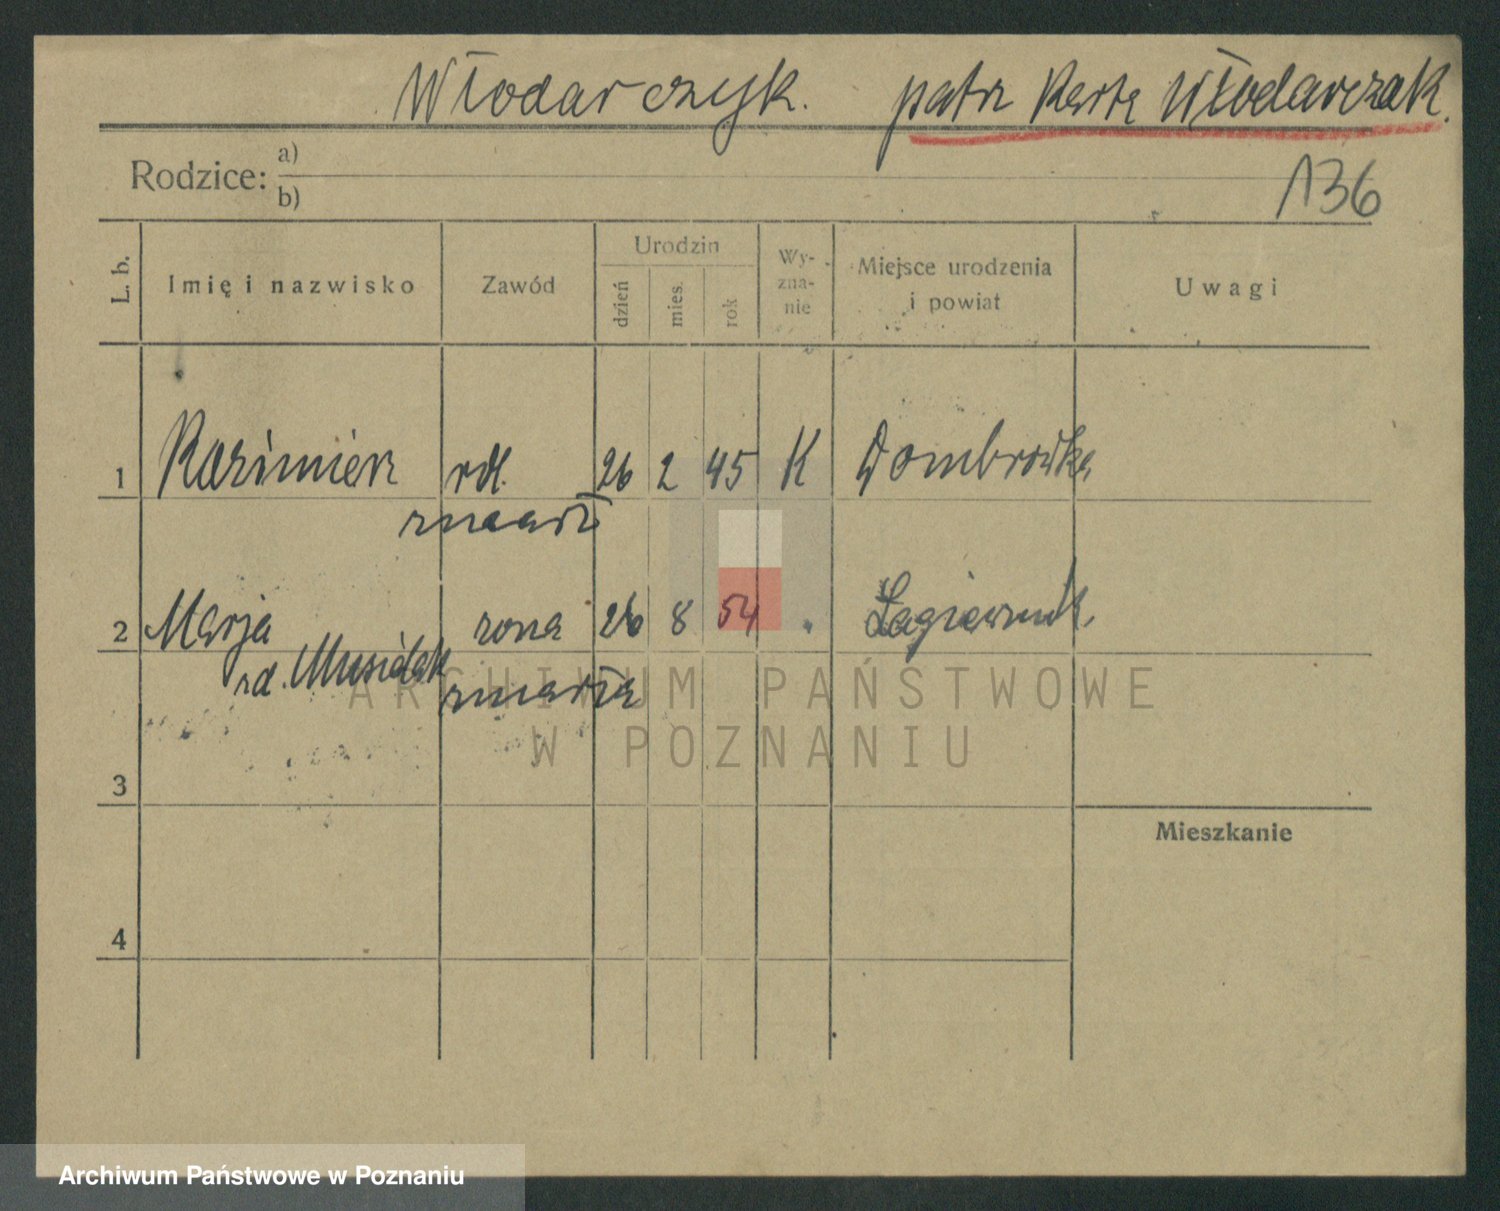 Włodarczyk. patrz Kartę Włodarczak.
Rodzice: a)
b)
136
L. b. Imię i nazwisko Zawód Urodzin dzień mies. rok Wy-zna-nie Miejsce urodzenia i powiat Uwagi
1 Kazimierz rdl. 26 2 45 K Dombrowka
zmarł
2 Marja żona 26 8 54 " Łagiewnik.
rd. Musidak zmarła
3
Mieszkanie
4
ARCHIWUM PAŃSTWOWE
W POZNANIU
Archiwum Państwowe w Poznaniu